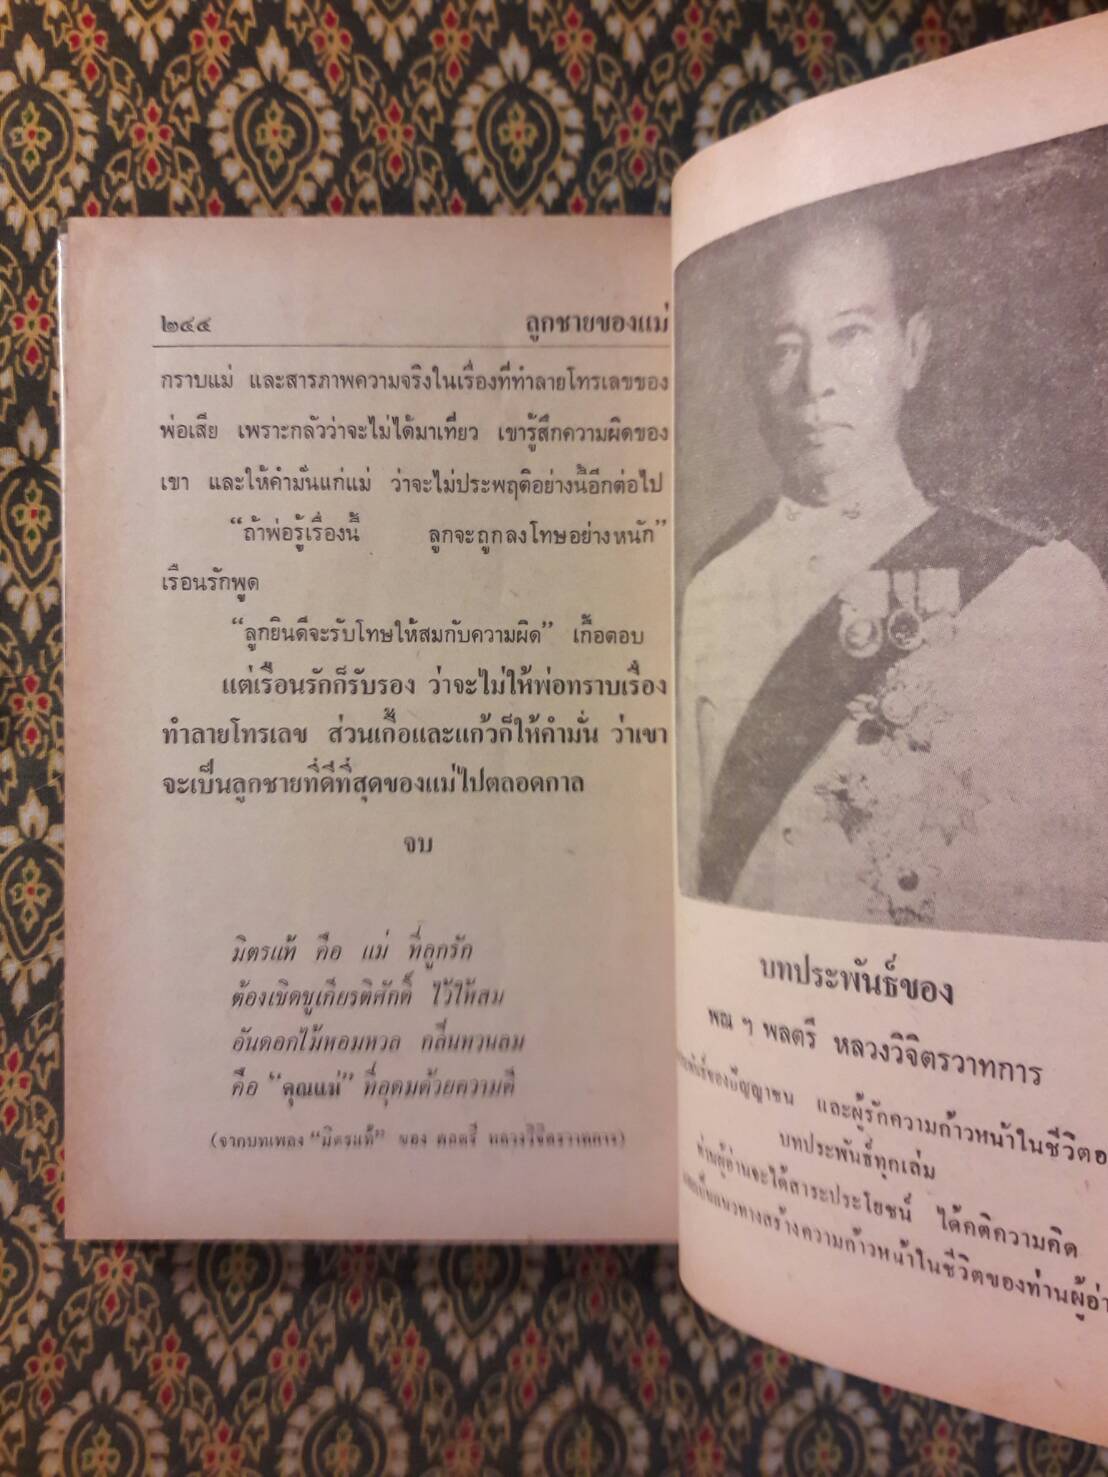 ๒๔๔ ลูกชายของแม่
กราบแม่ และสารภาพความจริงในเรื่องที่ทำลายโทรเลขของ
พ่อเสีย เพราะกลัวว่าจะไม่ได้มาเที่ยว เขารู้สึกความผิดของ
เขา และให้คำมั่นแก่แม่ ว่าจะไม่ประพฤติอย่างนี้อีกต่อไป
“ถ้าพ่อรู้เรื่องนี้ ลูกจะถูกลงโทษอย่างหนัก”
เรือนรักพูด
“ลูกยินดีจะรับโทษให้สมกับความผิด” เกื้อตอบ
แต่เรือนรักก็รับรอง ว่าจะไม่ให้พ่อทราบเรื่อง
ทำลายโทรเลข ส่วนเกื้อและแก้วก็ให้คำมั่น ว่าเขา
จะเป็นลูกชายที่ดีที่สุดของแม่ไปตลอดกาล
จบ
มิตรแท้ คือ แม่ ที่ลูกรัก
ต้องเชิดชูเกียรติศักดิ์ ไว้ให้สม
อันดอกไม้หอมหวล กลิ่นทวนลม
คือ “คุณแม่” ที่อุดมด้วยความดี
(จากบทเพลง “มิตรแท้” ของ พลตรี หลวงวิจิตรวาทการ)
บทประพันธ์ของ
พณ ฯ พลตรี หลวงวิจิตรวาทการ
ของปัญญาชน และผู้รักความก้าวหน้าในชีวิต
บทประพันธ์ทุกเล่ม
ท่านผู้อ่านจะได้สาระประโยชน์ ได้คติความคิด
แนวทางสร้างความก้าวหน้าในชีวิตของท่านผู้อ่า